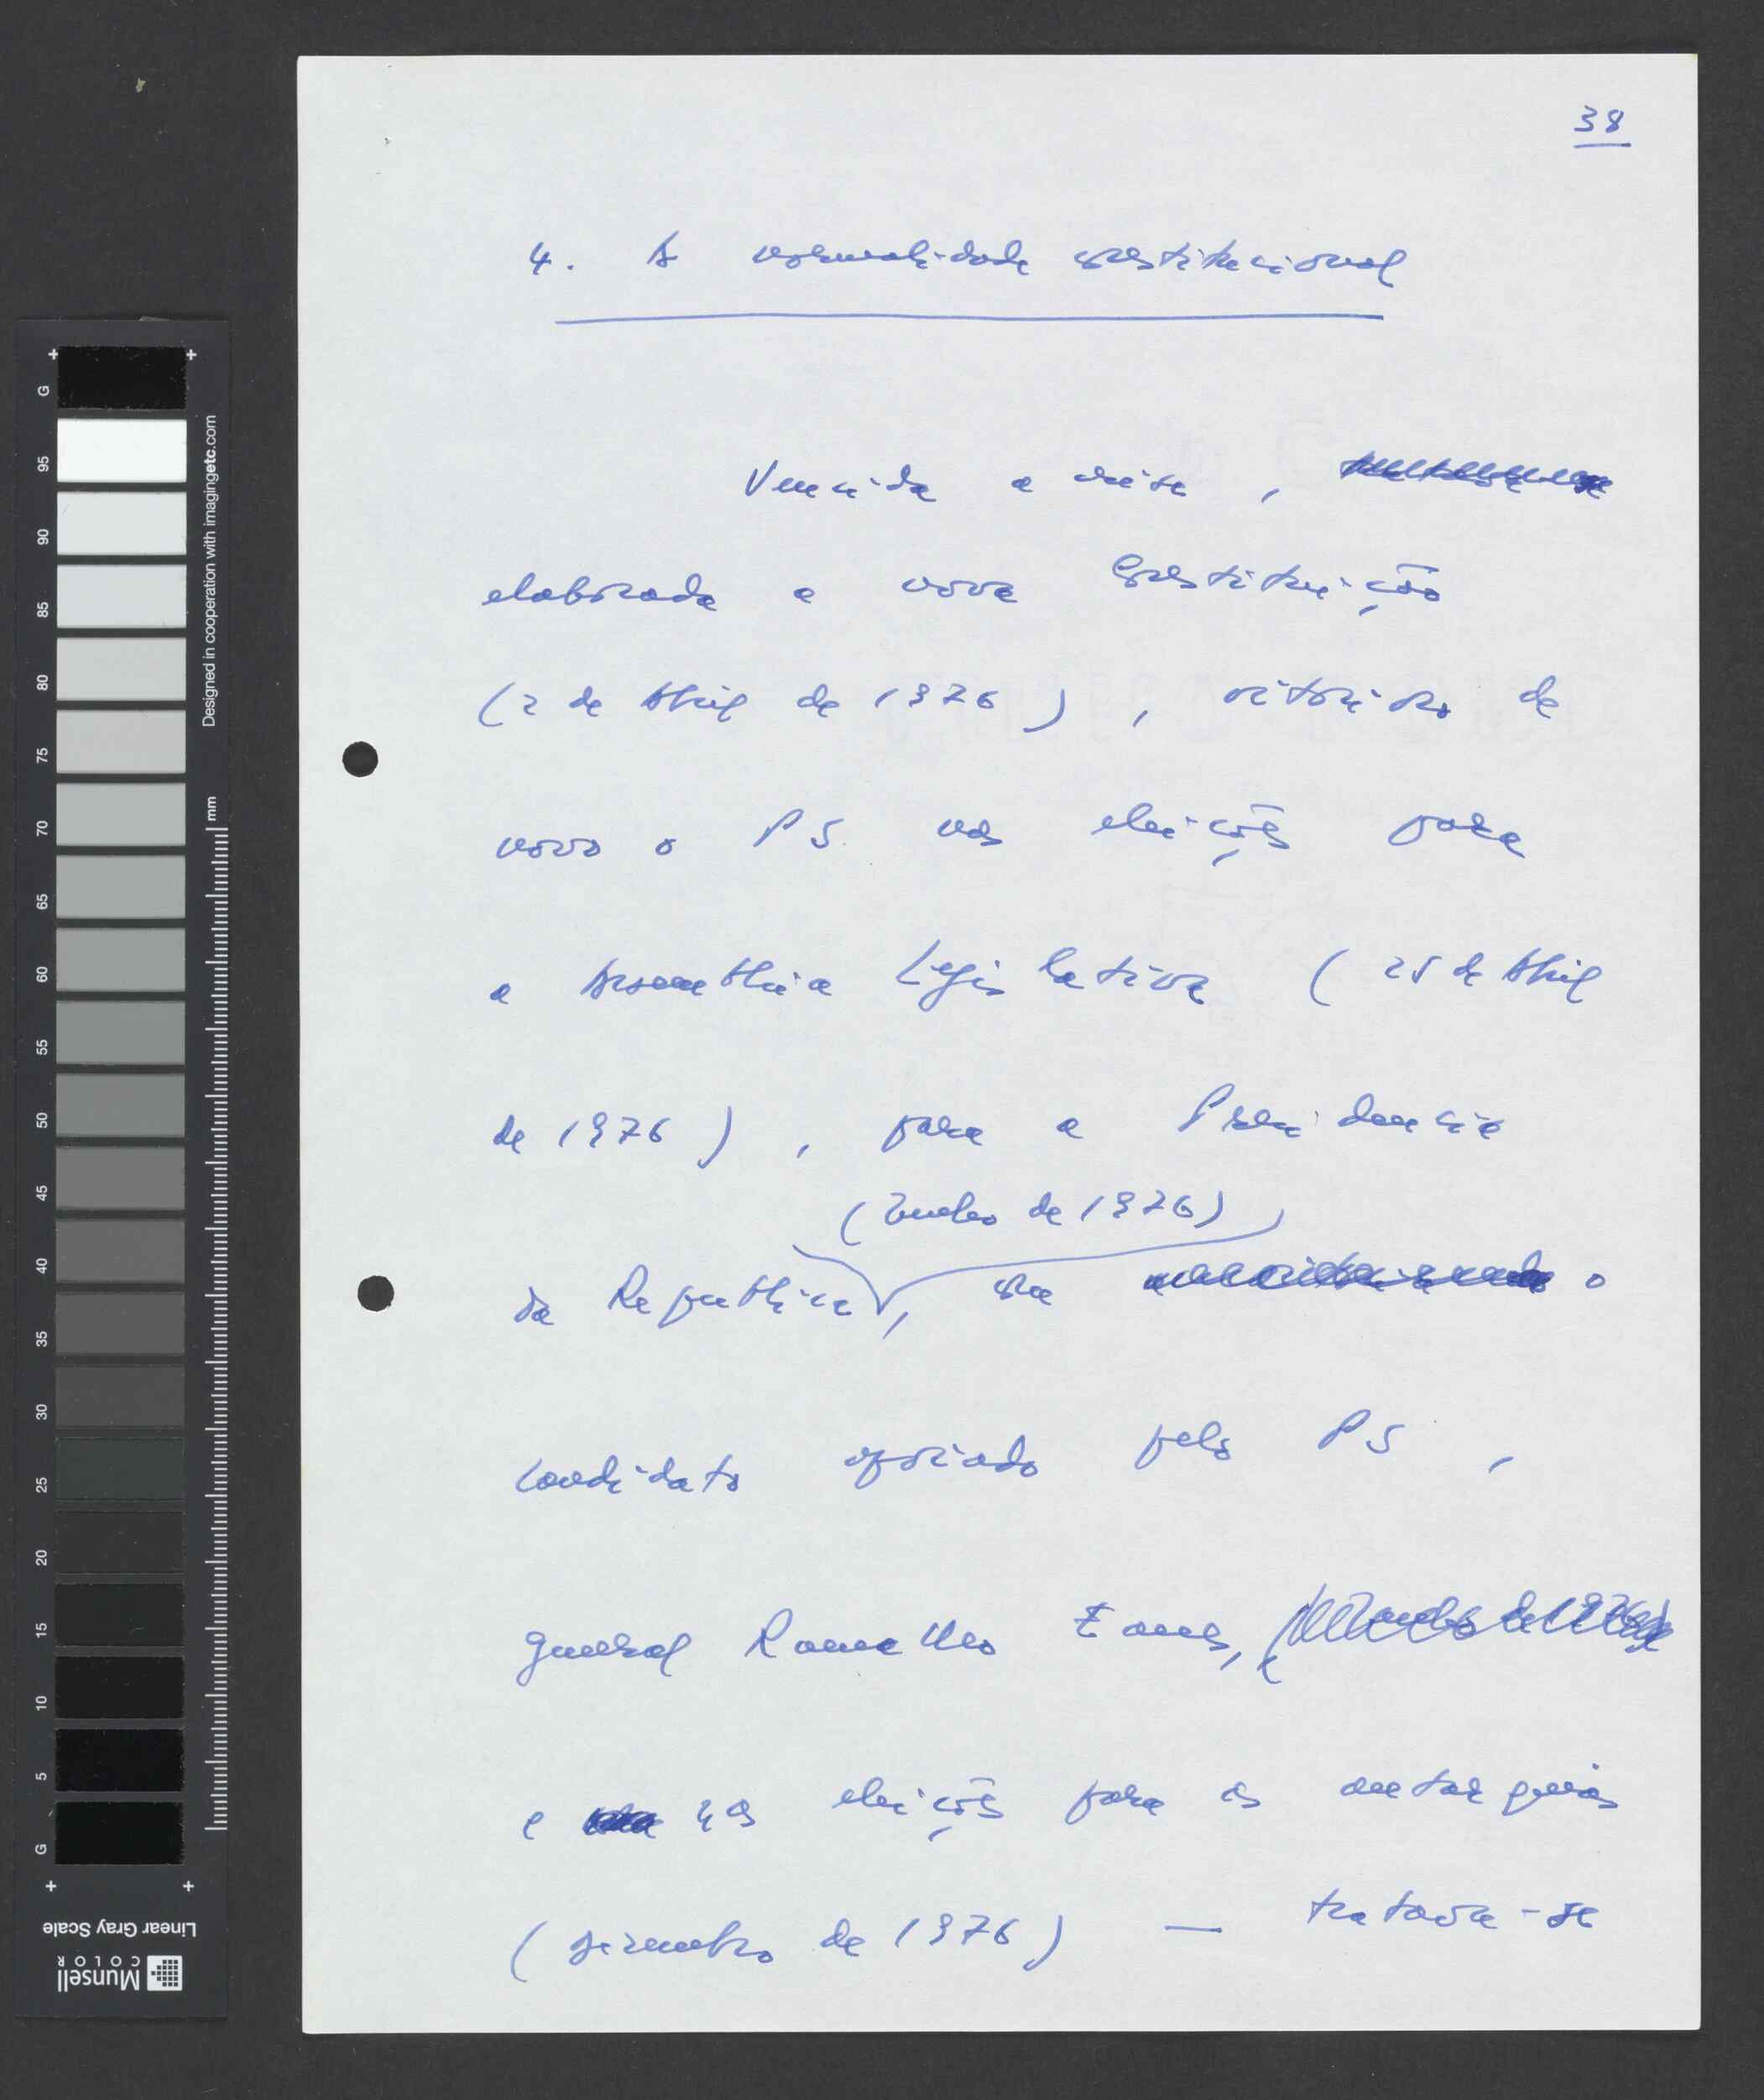 38
4. A normalidade constitucional
Vencida a crise,
elaborada a nova Constituição
(2 de Abril de 1976), vitorioso de
novo o PS nas eleições para
a Assembleia Legislativa (25 de Abril
de 1976), para a Presidência
(Junho de 1976)
da República, com o
candidato apoiado pelo PS,
general Ramalho Eanes,
e nas eleições para as autarquias
(dezembro de 1976) — tratava-se
G
95
90
85
80
75
70
65
60
55
50
45
40
35
30
25
20
15
10
5
G
Designed in cooperation with imagingetc.com
mm
Linear Gray Scale
Munsell
COLOR